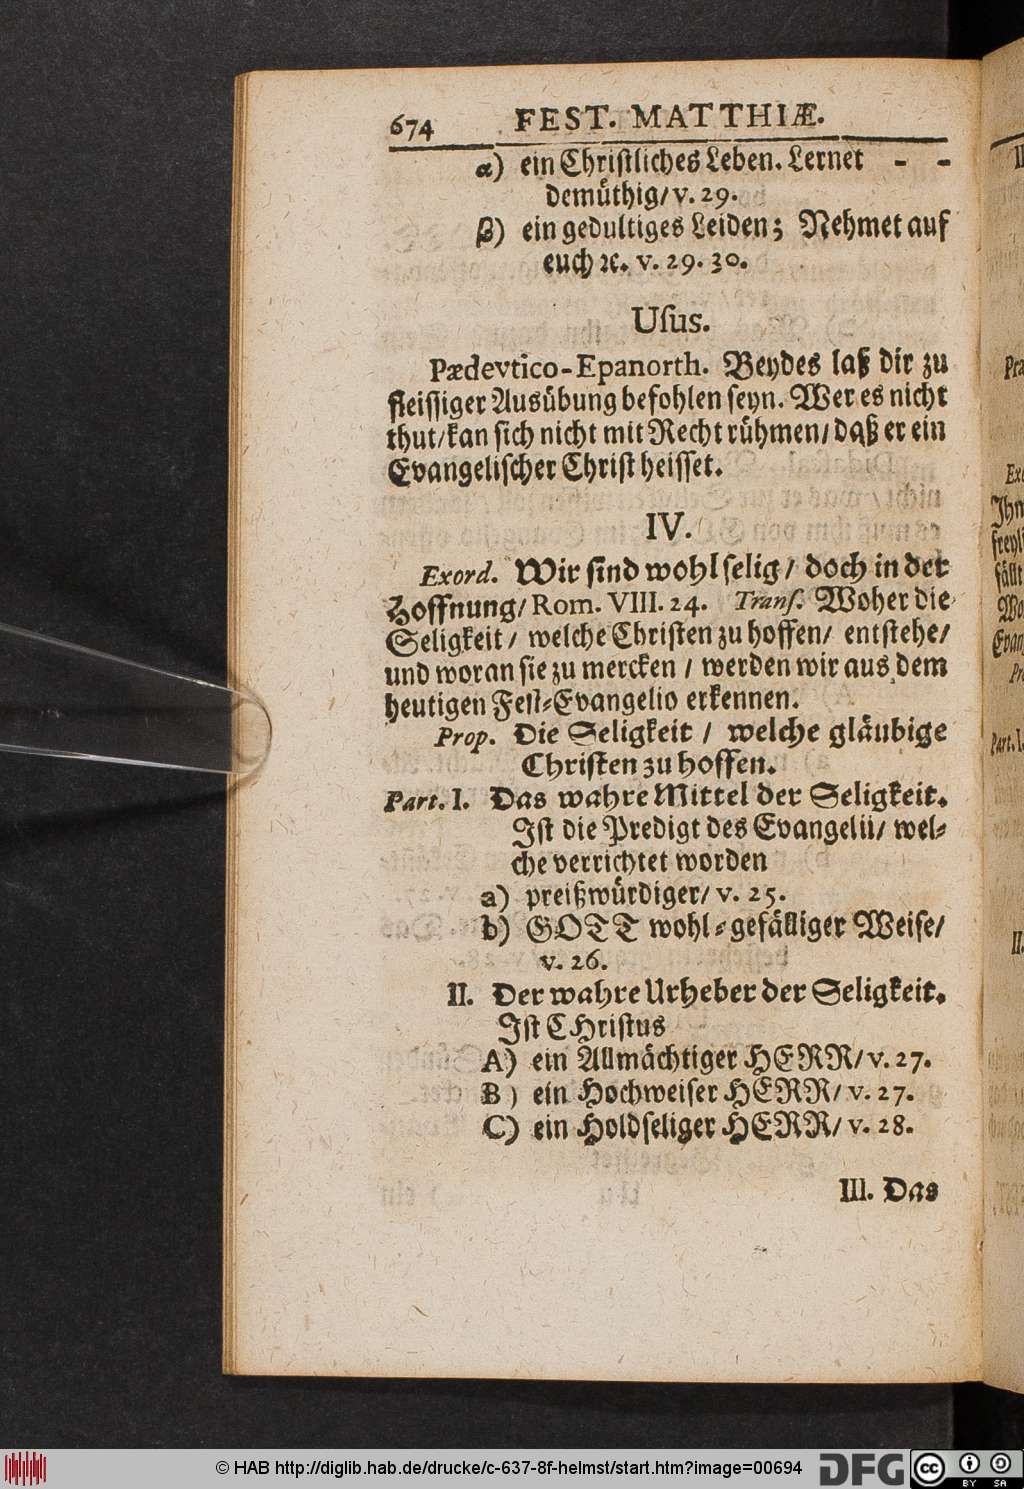 674 FEST. MATTHIÆ.
α) ein Christliches Leben. Lernet - -
demüthig/ v. 29.
β) ein gedultiges Leiden; Nehmet auf
euch ꝛc. v. 29. 30.
Uſus.
Pædevtico-Epanorth. Beydes laß dir zu
fleiſſiger Ausübung befohlen ſeyn. Wer es nicht
thut/ kan ſich nicht mit Recht rühmen/ daß er ein
Evangeliſcher Chriſt heiſſet.
IV.
Exord. Wir ſind wohl ſelig/ doch in der
Hoffnung/ Rom. VIII. 24. Tranſ. Woher die
Seligkeit/ welche Chriſten zu hoffen/ entſtehe/
und woran ſie zu mercken/ werden wir aus dem
heutigen Feſt-Evangelio erkennen.
Prop. Die Seligkeit/ welche gläubige
Chriſten zu hoffen.
Part. I. Das wahre Mittel der Seligkeit.
Iſt die Predigt des Evangelii/ wel-
che verrichtet worden
a) preißwürdiger/ v. 25.
b) GOTT wohl-gefälliger Weiſe/
v. 26.
II. Der wahre Urheber der Seligkeit.
Iſt CHriſtus
A) ein Allmächtiger HERR/ v. 27.
B) ein Hochweiſer HERR/ v. 27.
C) ein Holdſeliger HERR/ v. 28.
III. Das
© HAB http://diglib.hab.de/drucke/c-637-8f-helmst/start.htm?image=00694
DFG
cc BY SA